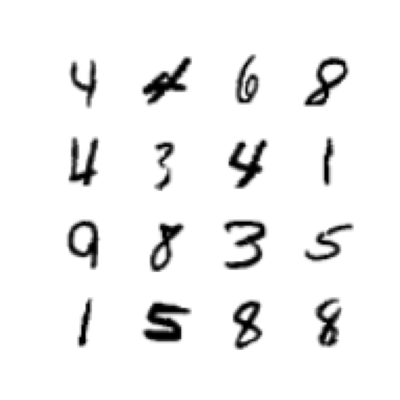 4 4 6 8
4 3 4 1
9 8 3 5
1 5 8 8